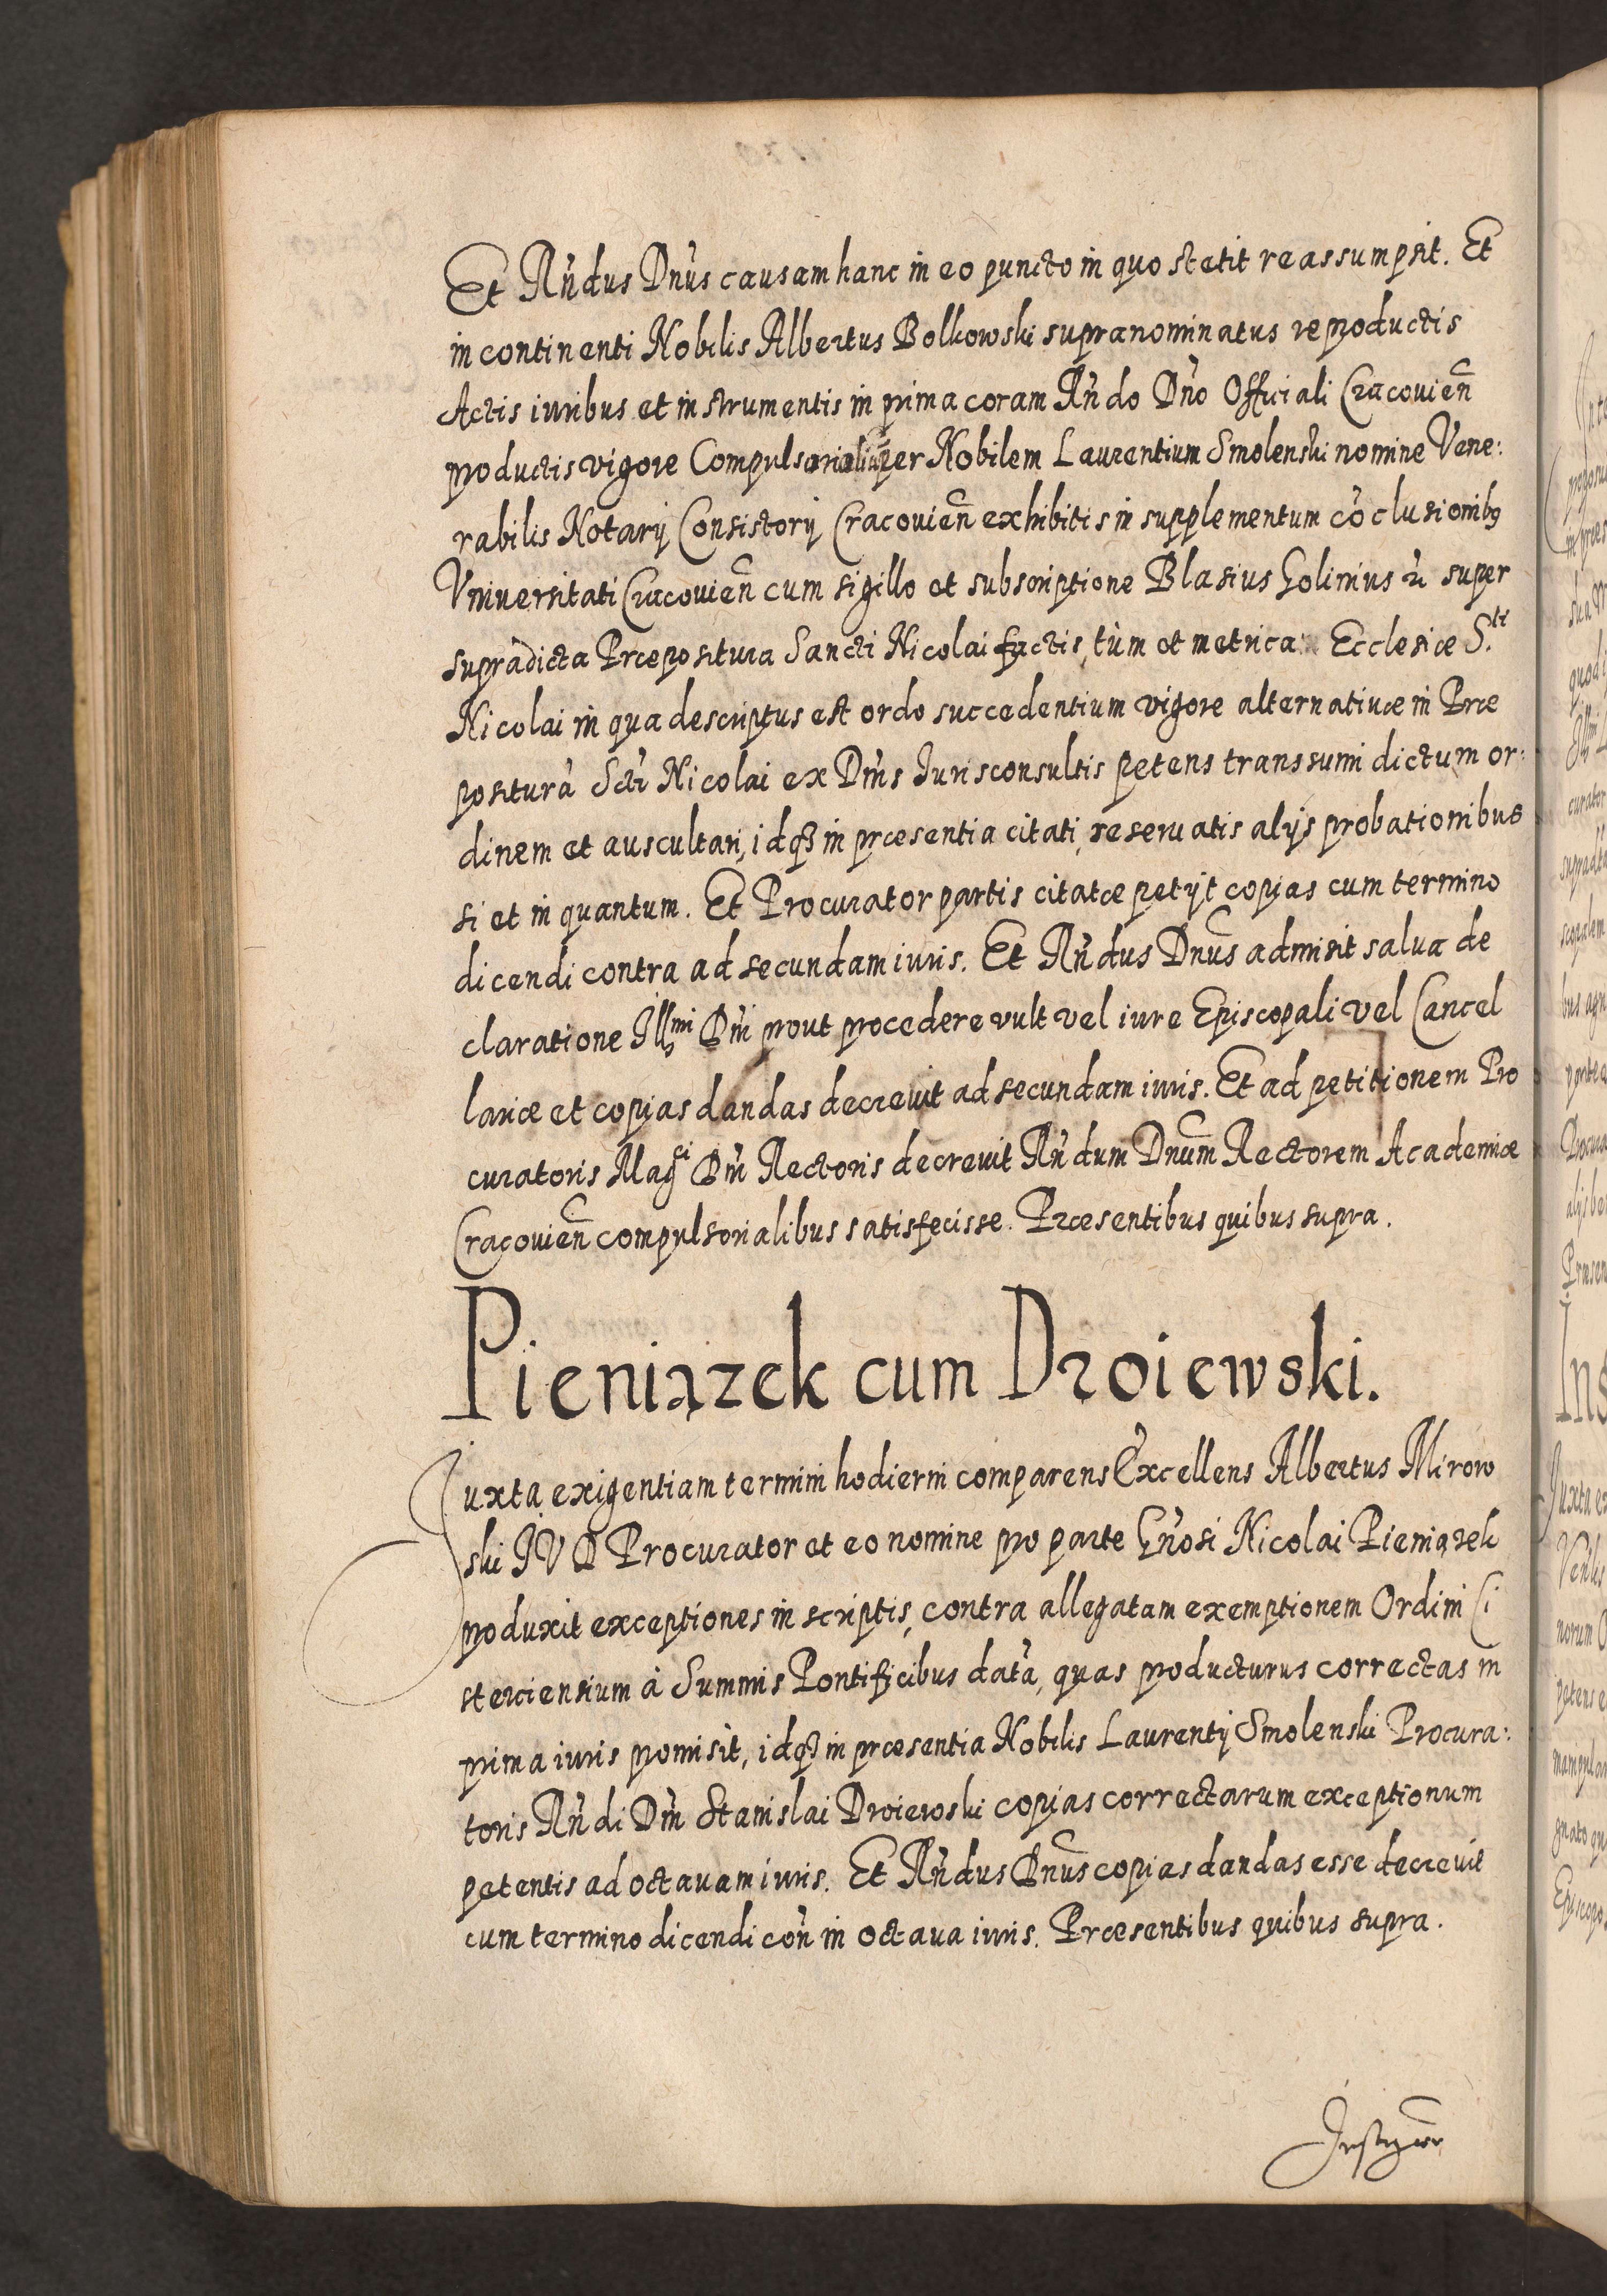 Et Rñdus Dnũs causam hanc in eo puncto in quo stetit reassumpsit. Et
in continenti Nobilis Albertus Bolkowski supranominatus reproductis
Actis iuribus et instrumentis in prima coram Rñdo Dño Officiali Cracouieñ
productis vigore Compulsorialiũ per Nobilem Laurentium Smolenski nomine Vene:
rabilis Notarij Consistorij Cracouieñ exhibitis in supplementum cõclusionibꝫ
Vniuersitati Cracouieñ cum sigillo et subscriptione Blasius Golinius ꝛc super
supradicta Præpositura Sancti Nicolai factis, tùm et metrica Ecclesiæ S.ti
Nicolai in qua descriptus est ordo succedentium vigore alternatiuæ in Præ
positurà Scti Nicolai ex Dnis Jurisconsultis petens transsumi dictum or:
dinem et auscultari, idqꝫ in præsentia citati, reseruatis alijs probationibus
si et in quantum. Et Procurator partis citatæ petijt copias cum termino
dicendi contra ad secundam iuris. Et Rñdus Dnũs admisit salua de
claratione Illmi Dñi prout procedere vult vel iure Episcopali vel Cancel
lariæ et copias dandas decreuit ad secundam iuris. Et ad petitionem Pro
curatoris Magci Dñi Rectoris decreuit Rñdum Dnũm Rectorem Academiæ
Cracouieñ compulsorialibus satisfecisse. Præsentibus quibus supra.
Pieniązek cum Droiewski.
Juxta exigentiam termini hodierni comparens Excellens Albertus Mirow
ski JVD Procurator et eo nomine pro parte Gñosi Nicolai Pieniązek
produxit exceptiones in scriptis, contra allegatam exemptionem Ordini Ci
sterciensium à Summis Pontificibus datã, quas producturus correctas in
prima iuris promisit, idqꝫ in præsentia Nobilis Laurentij Smolenski Procura:
toris Rñdi Dñi Stanislai Droiewski copias correctarum exceptionum
petentis ad octauam iuris. Et Rñdus Dnũs copias dandas esse decreuit
cum termino dicendi coñ in octaua iuris. Præsentibus quibus supra.